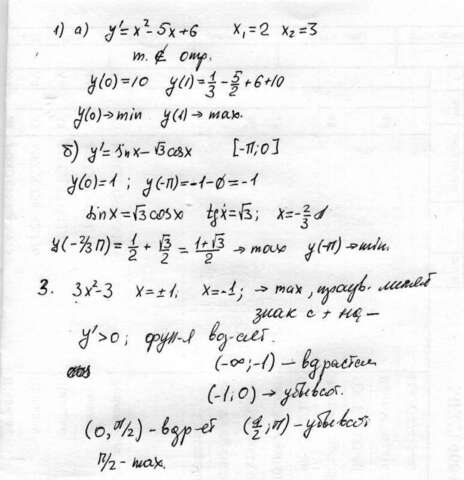 1) а) y' = x² - 5x + 6   x₁ = 2   x₂ = 3
т. ∉ отр.
y(0) = 10   y(1) = 1/3 - 5/2 + 6 + 10
y(0) → min   y(1) → max.
б) y' = sinx - √3 cosx   [-π; 0]
y(0) = 1 ; y(-π) = -1 - 0 = -1
sinx = √3 cosx   tgx = √3;   x = -2/3
y(-2/3 π) = 1/2 + √3/2 = (1+√3)/2 → max   y(-π) → min.
3. 3x² - 3   x = ±1;   x = -1; → max, произв. меняет
знак с + на -
y' > 0; функ-я воз-ает.
(-∞; -1) - возрастает
(-1; 0) → убывает.
(0, π/2) - возр-ет   (π/2; π) - убывает
π/2 - max.